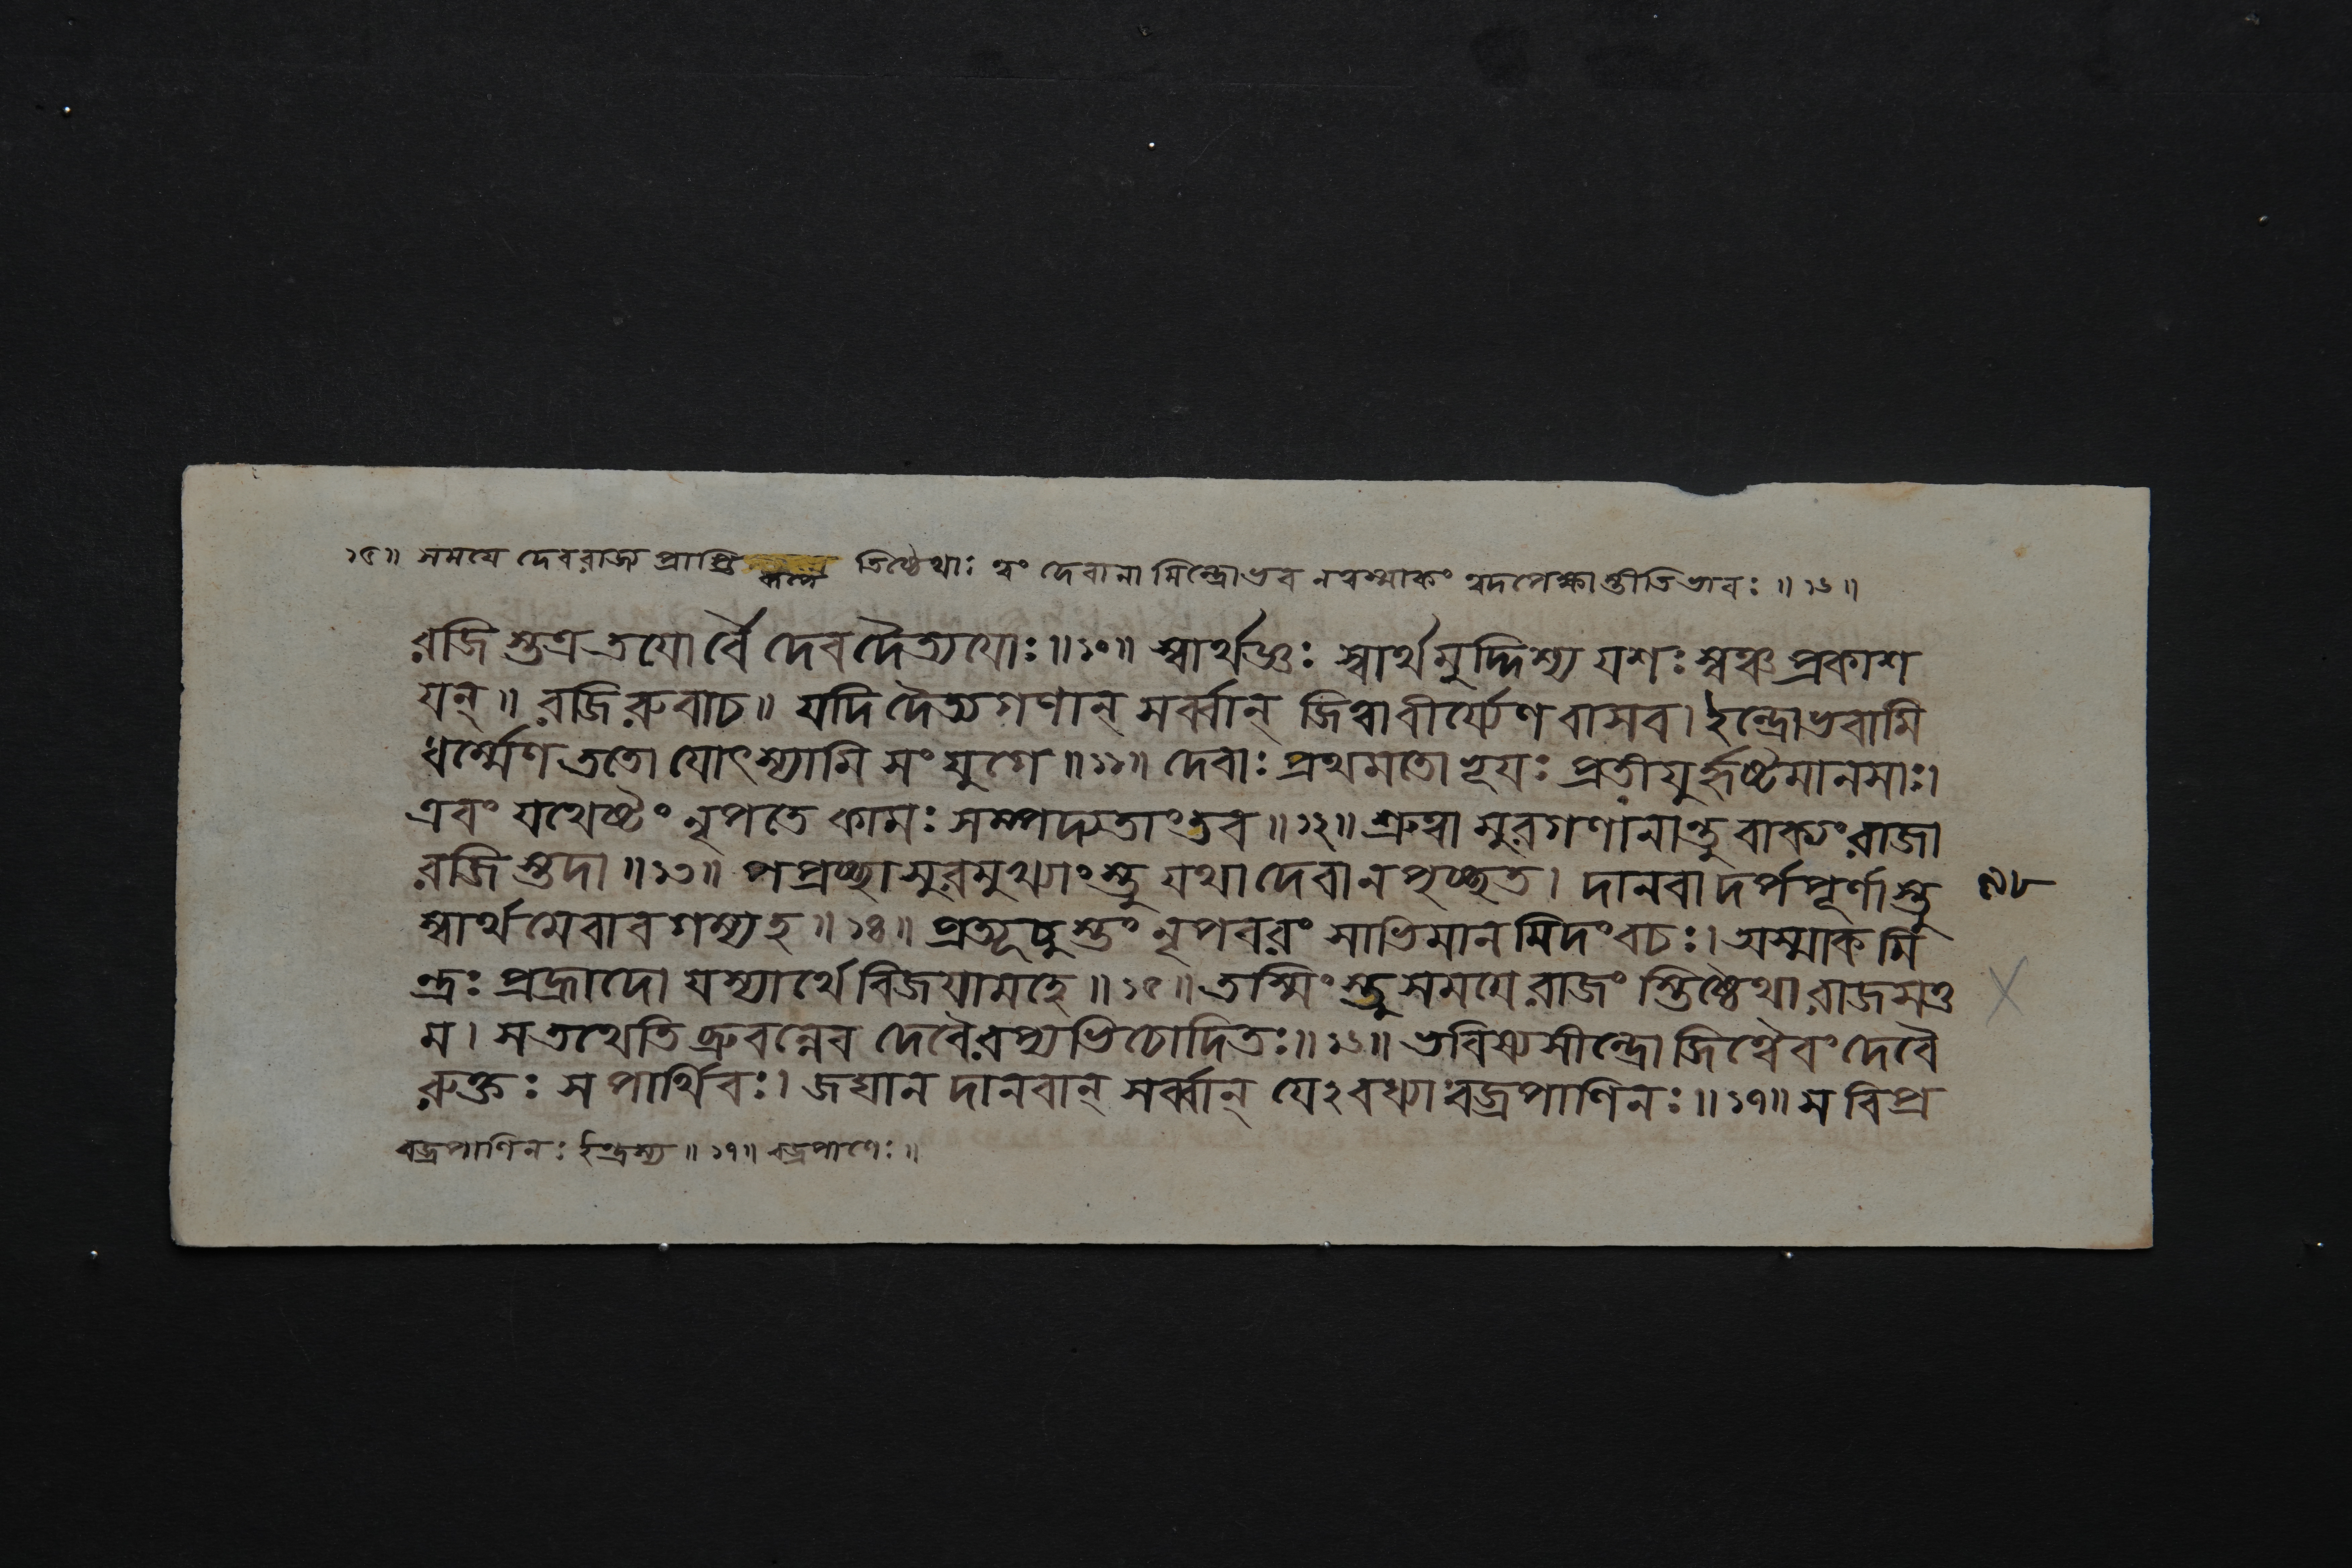 ১৫॥ সময়ে দেবরাজ্য প্রাপ্তি কালে তিষ্ঠেথাঃ ত্বং দেবানামিন্দ্রোভব নত্বস্মাকং ত্বদপেক্ষাস্তীতিভাবঃ ॥ ১৬ ॥
রজিস্তুত্র তয়োর্বৈ দেবদৈত্যয়োঃ ॥ ১০ ॥ স্বার্থজ্ঞঃ স্বার্থমুদ্দিশ্য যশঃ স্বঞ্চ প্রকাশ
য়ন্ ॥ রজিরুবাচ ॥ যদি দৈত্যগণান্ সর্ব্বান্ জিত্বা বীর্য্যেণ বাসব। ইন্দ্রোভবামি
ধর্ম্মেণ ততো যোৎস্যামি সংযুগে ॥ ১১ ॥ দেবাঃ প্রথমতো হূয়ঃ প্রতীয়ুর্হৃষ্টমানসাঃ।
এবং যথেষ্টং নৃপতে কামঃ সম্পদ্যতাং তব ॥ ১২ ॥ শ্রুত্বা সুরগণানান্তু বাক্যং রাজা
রজিস্তদা ॥ ১৩ ॥ পপ্রচ্ছাসুরমুখ্যাংস্তু যথা দেবানপৃচ্ছত। দানবা দর্পপূর্ণাস্তু ৯৮
স্বার্থমেবাবগম্য হ ॥ ১৪ ॥ প্রত্যূচুস্তং নৃপবরং সাভিমানমিদং বচঃ। অস্মাকমি
ন্দ্রঃ প্রহ্লাদো যস্যার্থে বিজয়ামহে ॥ ১৫ ॥ তস্মিংস্তু সময়ে রাজংস্তিষ্ঠেথা রাজসত্ত
ম। স তথেতি ব্রুবন্নেব দেবৈরপ্যভিচোদিতঃ ॥ ১৬ ॥ ভবিষ্যসীন্দ্রো জিত্বৈবং দেবৈ
রুক্তঃ স পার্থিবঃ। জঘান দানবান্ সর্ব্বান্ যেঽবধ্যা বজ্রপাণিনঃ ॥ ১৭ ॥ স বিপ্র
বজ্রপাণিনঃ ইন্দ্রস্য ॥ ১৭ ॥ বজ্রপাণেঃ ॥